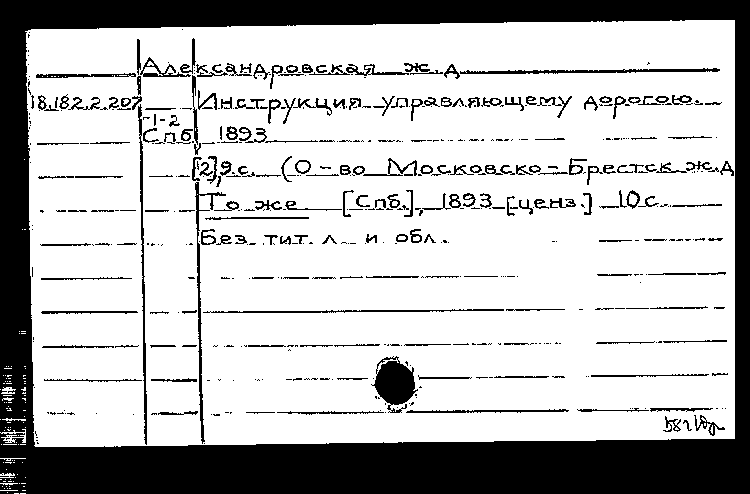 Александровская ж.д
18.182.2.207 Инструкция управляющему дорогою.
1-2
Спб, 1893
[2], 9 с. (О-во Московско-Брестск ж.д
То же [Спб.], 1893 [ценз.] 10 с.
Без тит. л. и обл.